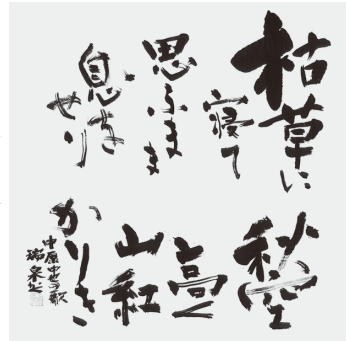 枯草に
寝て
思ふまま
息をせり
秋空
高く
山紅
かりき
中原中也の歌